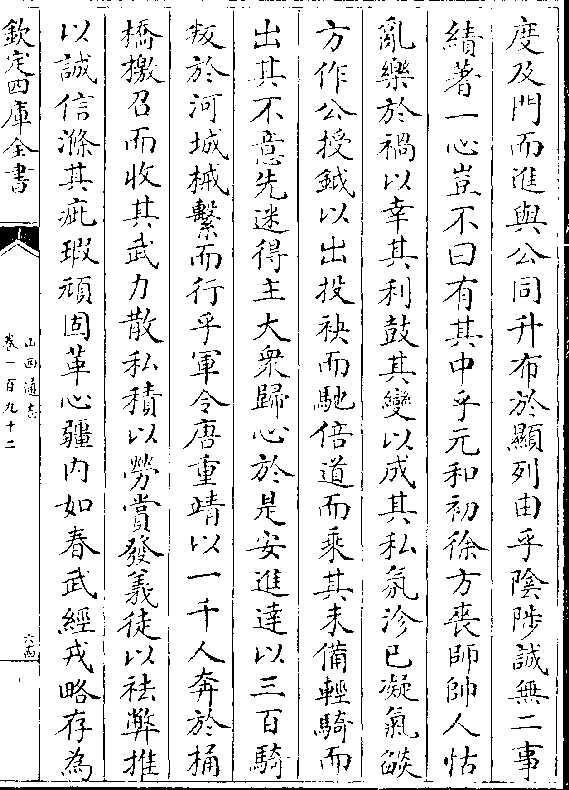 度及門而進與公同升布於顯列由乎陰陟誠無二事
績著一心豈不曰有其中乎元和初徐方喪師帥人怙
亂樂於禍以幸其利鼓其變以成其私氛沴已凝氣燄
方作公授鉞以出投袂而馳倍道而乘其未備輕騎而
出其不意先迷得主大衆歸心於是安進達以三百騎
叛於河城械繫而行乎軍令唐重靖以一千人奔於桶
橋檄召而收其武力散私積以勞賞發義徒以袪弊推
以誠信滌其疵瑕頑固革心疆内如春武經戎略存為
欽定四庫全書
山西通志
卷一百九十二
六四